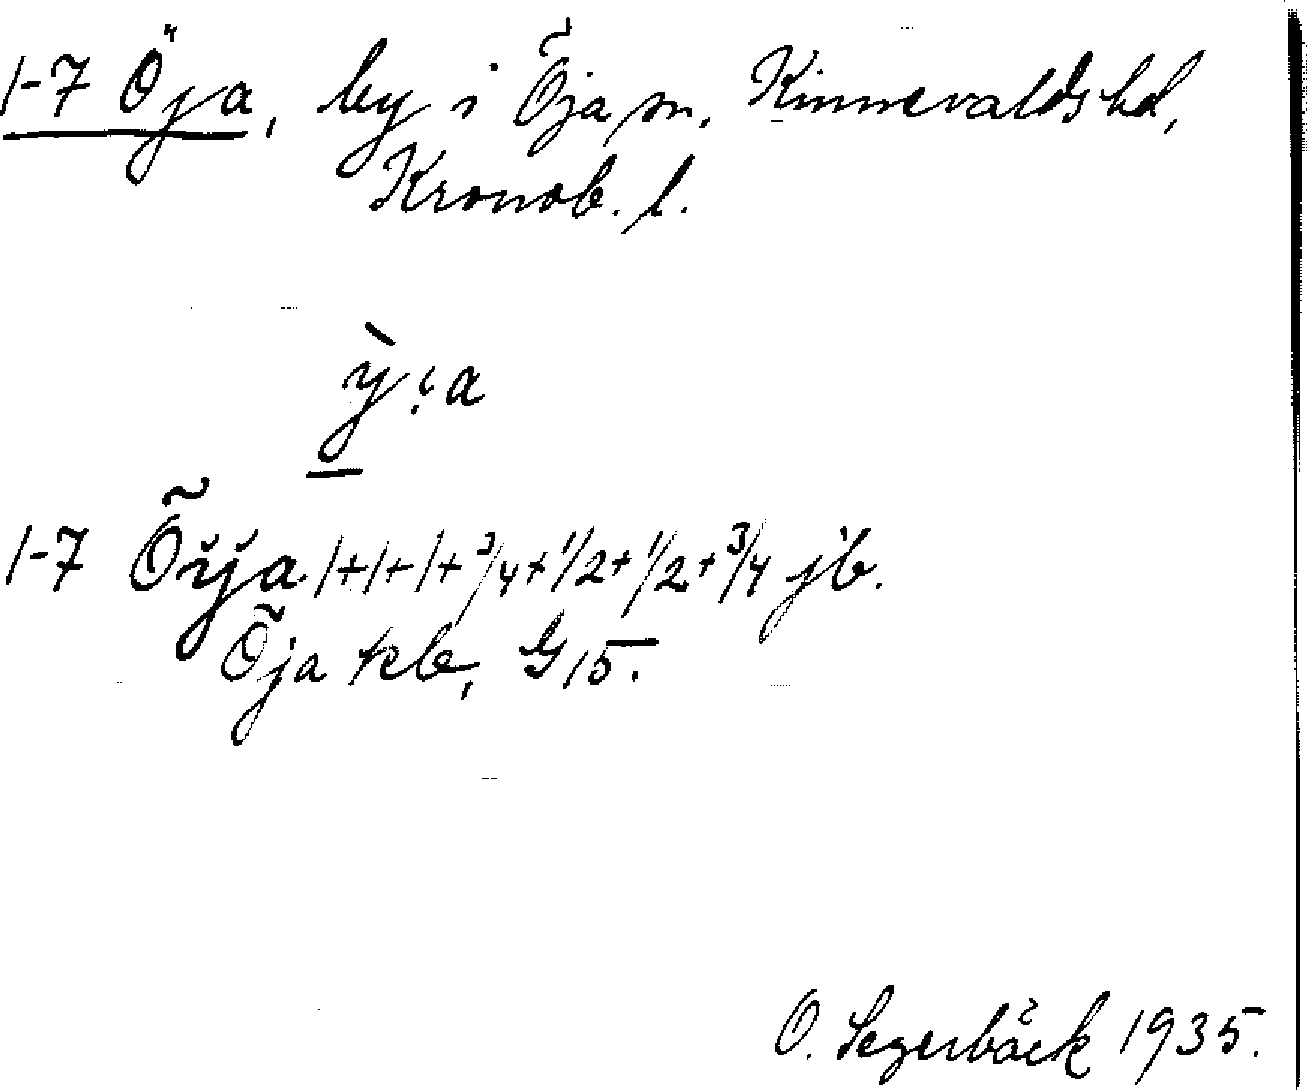 1-7 Öja, by i Öja sn, Kinnevalds hd,
Kronob. l.
ỳi̯a
1-7 Öija 1+1+1+3/4+1/2+1/2+3/4 jb.
Öja kb, G 15.
O. Segerbäck 1935.